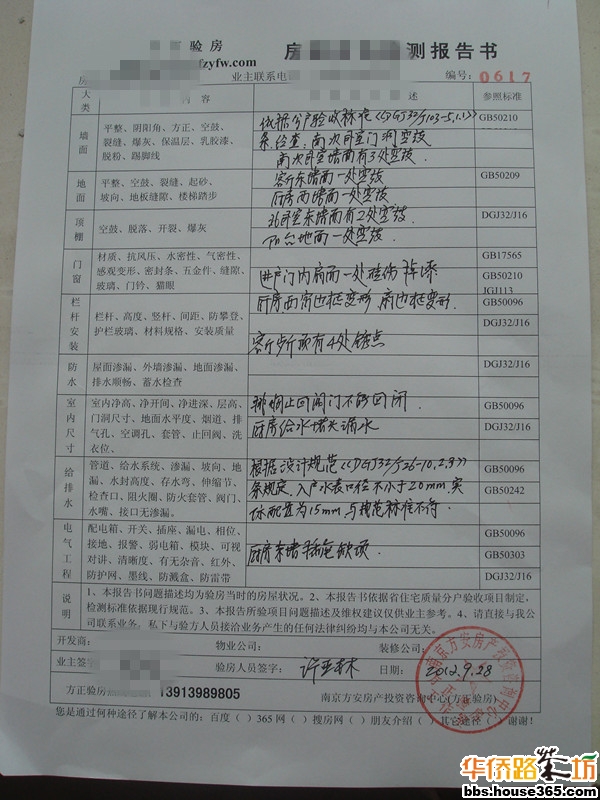 验房
fzyfw.com
房 测报告书
业主联系电
编号：0617
类 内 容 述 参照标准
墙面
平整、阴阳角、方正、空鼓、
裂缝、爆灰、保温层、乳胶漆、
脱粉、踢脚线
依据分户验收标准《DGJ32/J103-5.1.1》
条检查：南次卧室门洞空鼓
南次卧室墙面有3处空鼓.
GB50210
地面
平整、空鼓、裂缝、起砂、
坡向、地板缝隙、楼梯踏步
客厅东墙面一处空鼓
厨房西墙面一处空鼓.
GB50209
顶棚
空鼓、脱落、开裂、爆灰
北卧室东墙面有2处空鼓
阳台地面一处空鼓.
DGJ32/J16
门窗
材质、抗风压、水密性、气密性、
感观变形、密封条、五金件、缝隙、
玻璃、门铃、猫眼
进户门内扇面一处碰伤掉漆
GB17565
GB50210
JGJ113
栏杆安装
栏杆、高度、竖杆、间距、防攀登、
护栏玻璃、材料规格、安装质量
厨房西窗边框变形 扇边框变形.
客厅顶有4处锈点
GB50096
DGJ32/J16
防水
屋面渗漏、外墙渗漏、地面渗漏、
排水顺畅、蓄水检查
DGJ32/J16
室内尺寸
室内净高、净开间、净进深、层高、
门洞尺寸、地面水平度、烟道、排
气孔、空调孔、套管、止回阀、洗
衣位、
排烟止回阀门不能回闭.
厨房给水堵头滴水
GB50096
DGJ32/J16
给排水
管道、给水系统、渗漏、坡向、地
漏、水封高度、存水弯、伸缩节、
检查口、阻火圈、防火套管、阀门、
水嘴、接口无渗漏。
根据设计规范《DGJ32/J26-10.2.8》
条规定.入户水表口径不小于20mm实
际配置为15mm与规范标准不符.
GB50096
GB50242
电气工程
配电箱、开关、插座、漏电、相位、
接地、报警、弱电箱、模块、可视
对讲、清晰度、有无杂音、红外、
防护网、墨线、防溅盒、防雷带
GB50096
GB50303
DGJ32/J16
说明
1、本报告书问题描述均为验房当时的房屋状况。2、本报告书依据省住宅质量分户验收项目制定，
检测标准依据现行规范。3、本报告所验项目问题描述及维权建议仅供业主参考。4、请直接与我公
司联系业务，私下与验方人员接洽业务产生的任何法律纠纷均与本公司无关。
开发商： 物业公司： 装修公司：
业主签 验房人员签字： 许亚林 日期： 2012.9.28
方正验房 13913989805 南京方安房产投资咨询中心(方正验房)
您是通过何种途径了解本公司的：百度（ ）365网（ ）搜房网（ ）朋友介绍（ ）其它途径（ ）谢谢！
华侨路茶坊
bbs.house365.com